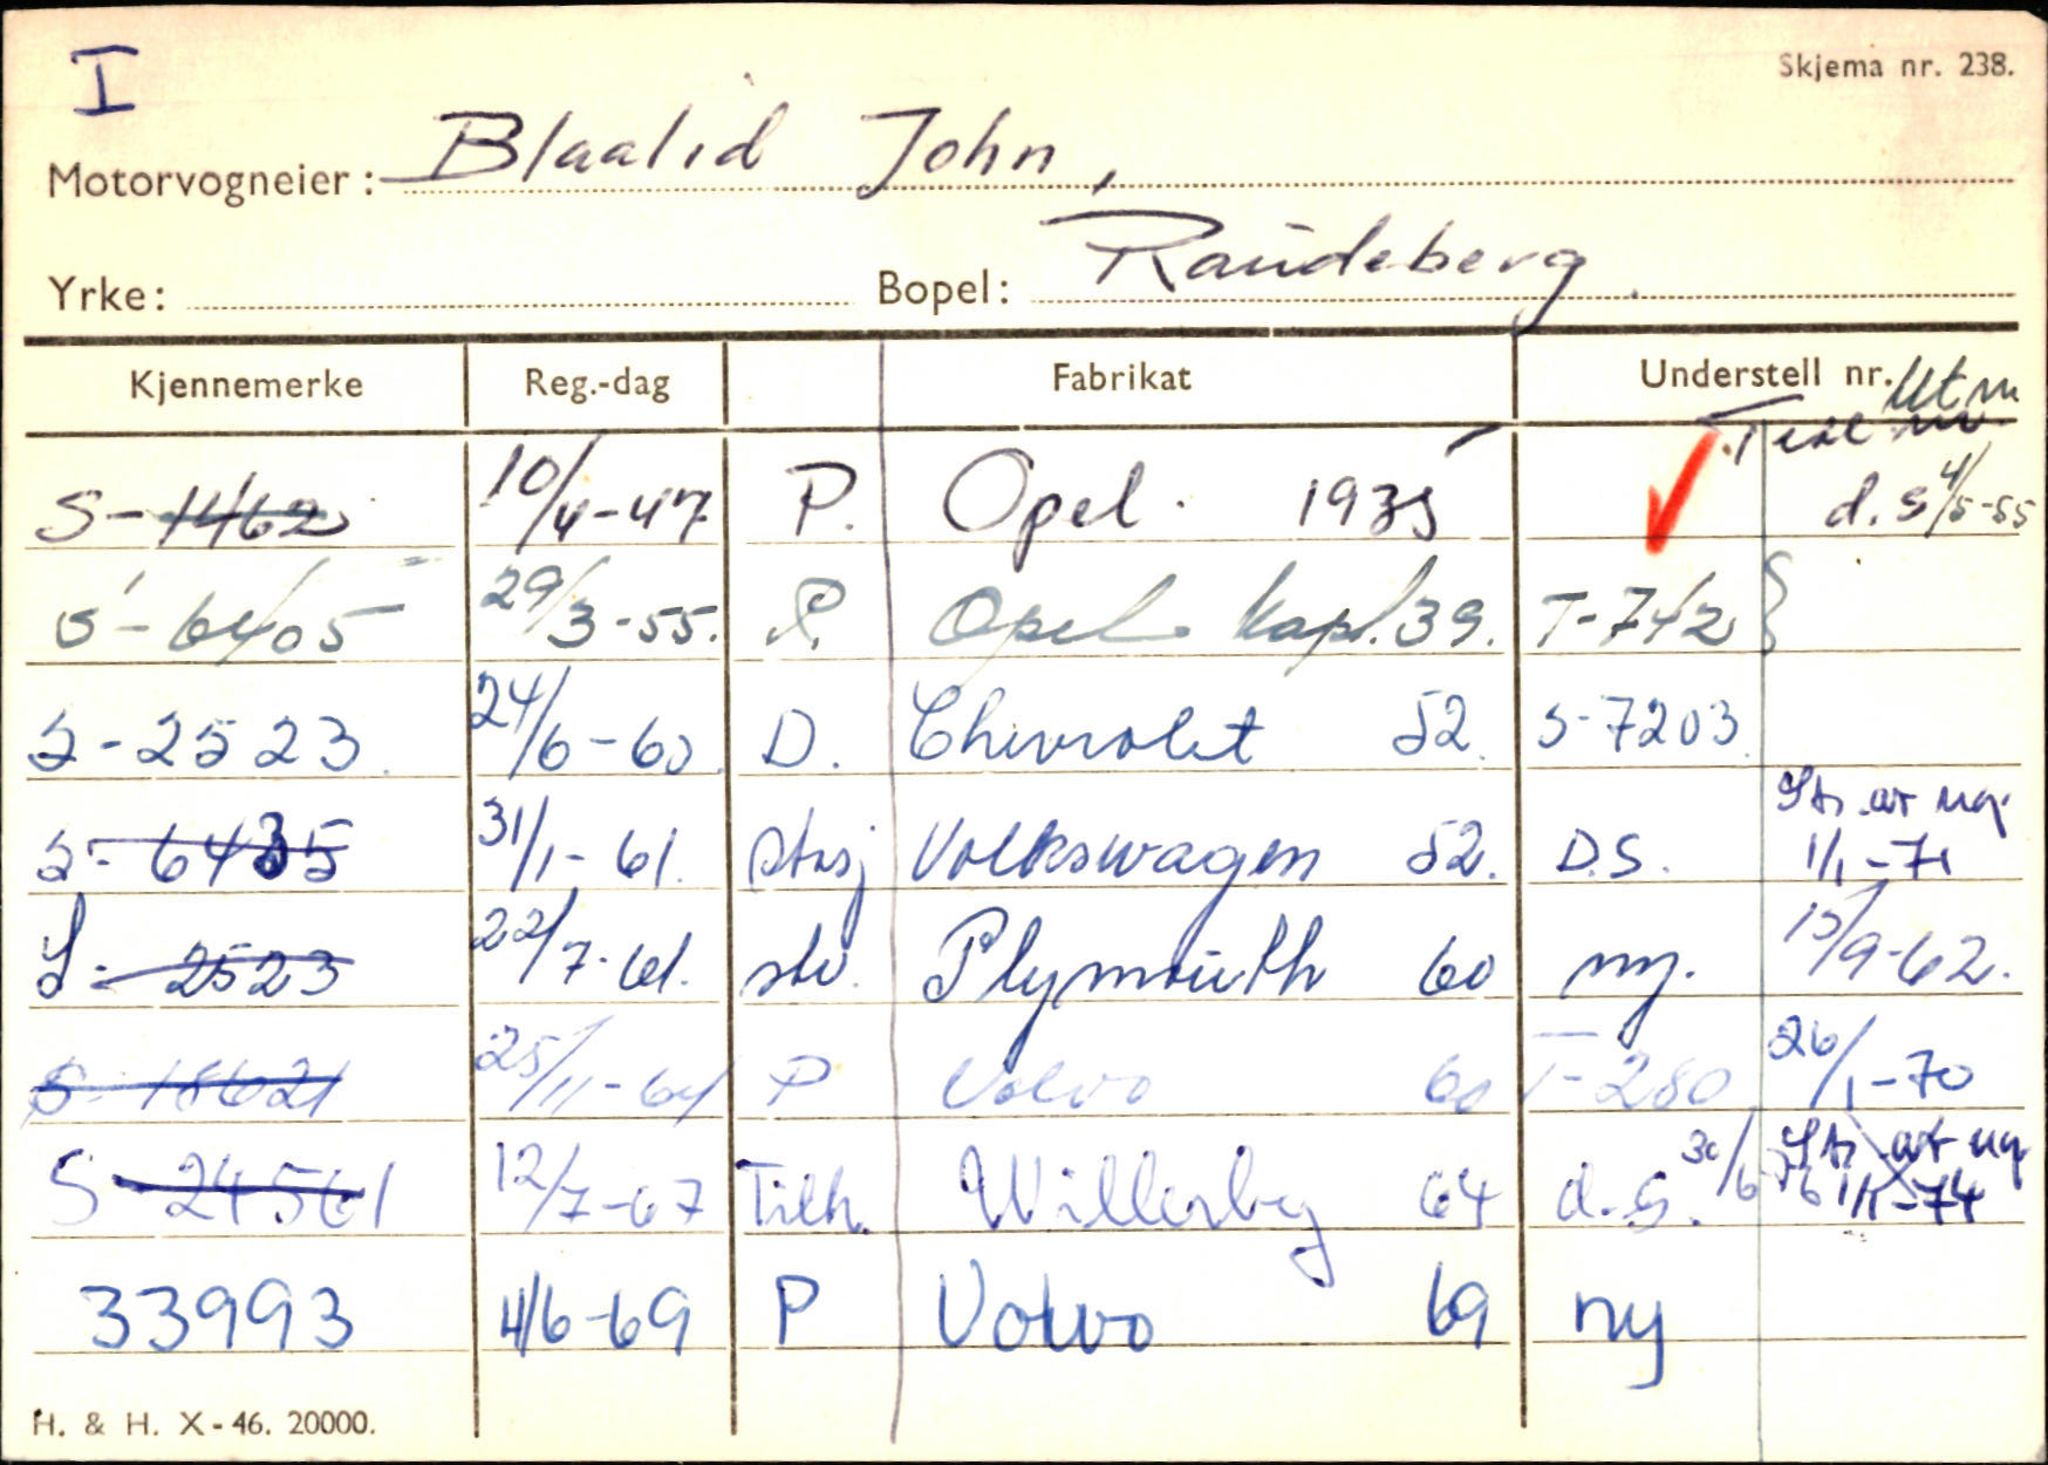 I
Skjema nr. 238.
Motorvogneier: Blaalid John,
Yrke: Bopel: Raudeberg.
Kjennemerke Reg.-dag Fabrikat Understell nr. Utm
S-1462 10/4-47 P. Opel. 1935 d.s 4/5-55
S-6405 29/3-55. P. Opel Kapt. 39. T-742
S-2523. 24/6-60 D. Chevrolet 52. S-7203
S-6435 31/1-61. stasj Volkswagen 52. D.S. Str. av reg. 1/1-71
S-2523 22/7-61. stv. Plymouth 60 ny. 15/9-62.
S-18621 25/11-64 P Volvo 60 T-280 26/1-70
S-24561 12/7-67 Tilh. Willerby 64 d.s. 30/6 76 Str. av reg 1/1-74
33993 4/6-69 P Volvo 69 ny
H. & H. X-46. 20000.